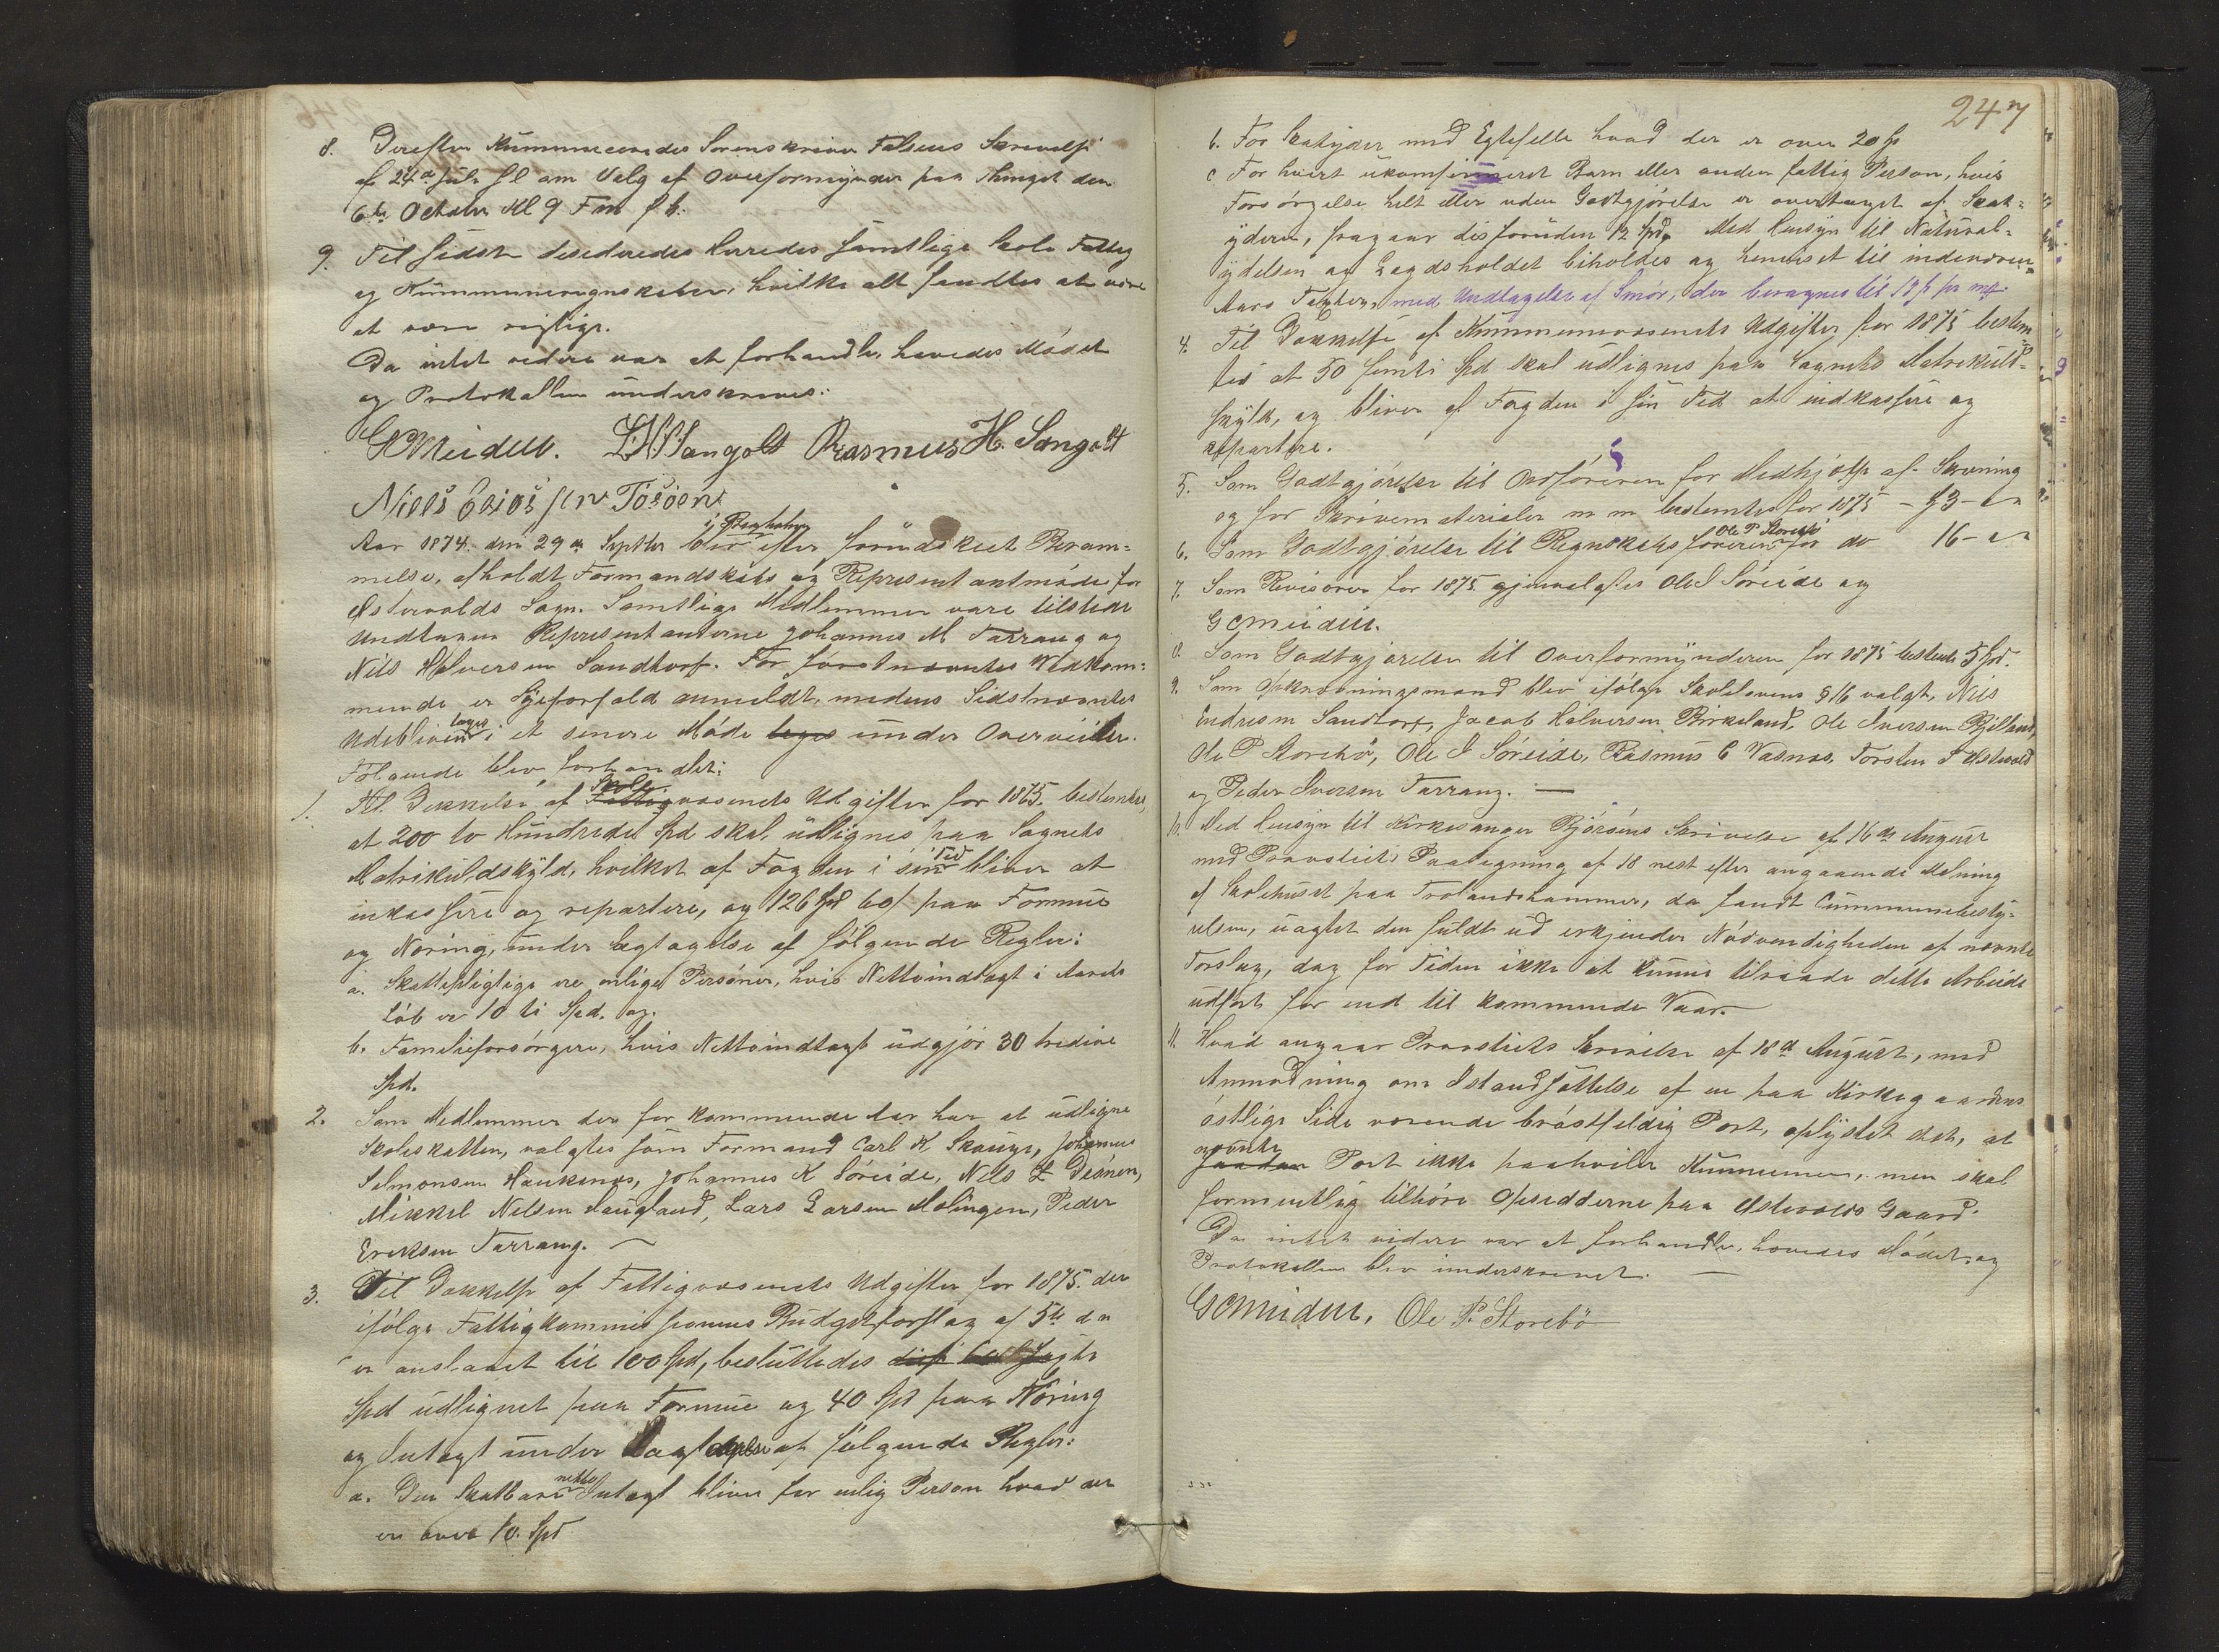 8. Derefter Kummuniceredes Sorenskriver Falsens Skrivelse
af 24de Juli f l om Valg af Overformynder paa Thinget den
6te October Kl 9 Fm f b.
9. Til sidst desideredes Herredes samtlige Skole Fattig
og Kummuneregnskaber, hvilke alt fandtes at være
at være rigtige.
Da intet videre var at forhandle, hævedes Mødet
og Protokollen underskreves:
GCMeidell. Sangolt Rasmus H. Sangolt
Niels
Aar 1874. den 29de Septbr blev i Bagholmen efter forudskeet Beram=
melse, afholdt Formandskabs og Representantmøde for
Østervolds Sogn. Samtlige Medlemmer vare tilstede
undtagen Representanterne Johannes M Tarrang og
Nils Halversen Sandtorf. For førstnævntes Vedkom=
mende er Sygeforfald anmeldt, medens Sidstnævntes
Udebliven tages i et senere Møde tages under Overveielse.
Følgende blev forhandlet:
1. Til Dekkelse af Skole Fattigvæsenets Udgifter for 1875. bestemtes,
at 200 to Hundrede Spd skal udlignes paa Sognets
Matrikuldskyld, hvilket af Fogden i sin Tid bliver at
inkassere og repartere, og 126 Spd 60 s paa Formue
og Nøring, under Iagtagelse af følgende Regler:
a. Skattepligtige ere enlige Personer, hvis Nettoindtægt i Aarets
Løb er 10 ti Spd. og.
b. Familieforsørgere, hvis Nettoindtægt udgjør 30 tredive
Spd.
2. Som Medlemmer der for kommende Aar har at udligne
Skoleskatten, valgtes som Formand Carl K Skauge, Johannes
Salmonsen Haukenes, Johannes K Søreide, Nils L
Mikkel Nelsen Haugland, Lars Larsen Møkingen, Peder
Ereksen Tarrang. —
3. Til Dækkelse af Fattigvæsenets Udgifter for 1875. der
ifølge Fattigkommissionens Budgetforslag af 5te dn
er anslaaet til 100 Spd, besluttedes
Spd udlignet paa Formue og 40 Spd paa Nøring
og Intægt under Iagtagelse af følgende Regler:
a. Den Skatbare netto Intægt bliver for enlig Person hvad der
er over 10. Spd
247
b. For Skatyder med Egtefelle hvad der er over 20 Sp
c For hvert ukomfirmeret Barn eller anden fattig Person, hvis
Forsørgelse helt eller uden Godtgjørelse er overtaget af Skat=
yderen, fragaar desforuden 12 Spd. Med Hensyn til Natural=
ydelsen og Lægdsholdet biholdes og henvist til indeværen=
Aars Taxter, med Undtagelse af Smør, der beregnes til 18 s pr
4. Til Dækkelse af Kummunevæsenets Udgifter for 1875 bestem=
tes at 50 femti Spd skal udlignes paa Sognets Matrikuld=
skyld, og bliver af Fogden i sin Tid at indkassere og
repartere.
5. Som Godtgjørelse til Ordføreren for Medhjælp af Skrivning
og for Skrivematerialer m m bestemtes for 1875 - 3 - " "
6. Som Godtgjørelse til Regnskabsføreren Ole P Storebø for do 16 - " "
7. Som Revisorer for 1875 gjenvalgtes Ole I Søreide og
GCMeidell.
8. Som Godtgjørelse til Overformynderen for 1875 bestemtes 5 Spd.
9. Som Opkrævningsmænd blev ifølge Skolelovens § 16 valgt, Nils
Endresen Sandtorf, Jacob Halversen Birkeland, Ole Iversen Bjelland,
Ole P Storebø, Ole I Søreide, Rasmus C Vasnes, Torsten I Østervold
og Peder Iversen Tarrang. —
10. Med Hensyn til Kirkesanger Bjørsens Skrivelse af 16de August
med Provstiets Paategning af 18 nest efter angaaende Malning
af Skolehuset paa Trolandshammer, da fandt Cummunebesty=
relsen, uagtet den fuldt ud erkjender Nødvendigheden af nævnte
Forslag, dog for Tiden ikke at kunne tilraade dette Arbeide
udført før end til kommende Vaar. —
11. Hvad angaar Provstiets Skrivelse af 18de August, med
Anmodning om Istandsættelse af en paa Kirkegaardens
østlige Side værende brøstfeldig Port, oplystes det, at
nævnte saadan Port ikke paahviler Kummunen, men skal
formentlig tilhøre Opsidderne paa Østervolds Gaard.
Da intet videre var at forhandle, hævedes Mødet, og
Protokollen blev underskrevet. —
GCMeidell, Ole P. Storebø